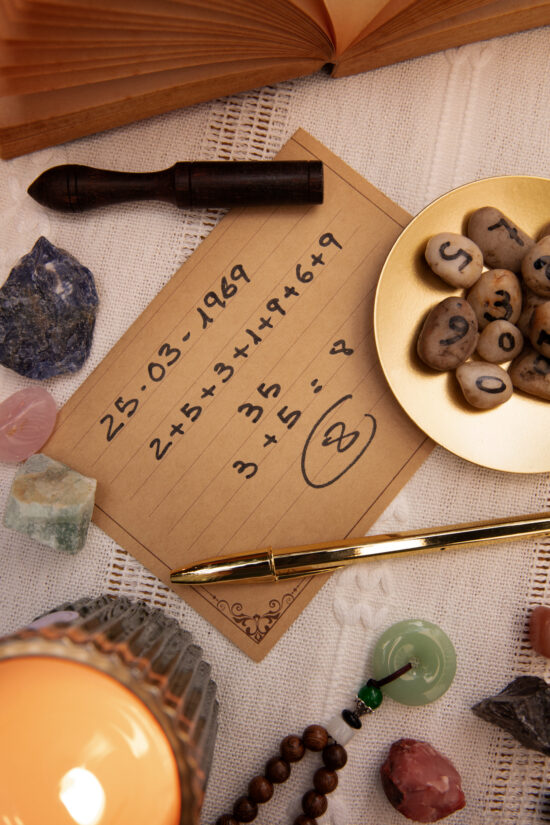 25.03-1969
2+5+3+1+9+6+9
35
3+5=8
8
5
7
3
3
9
0
0